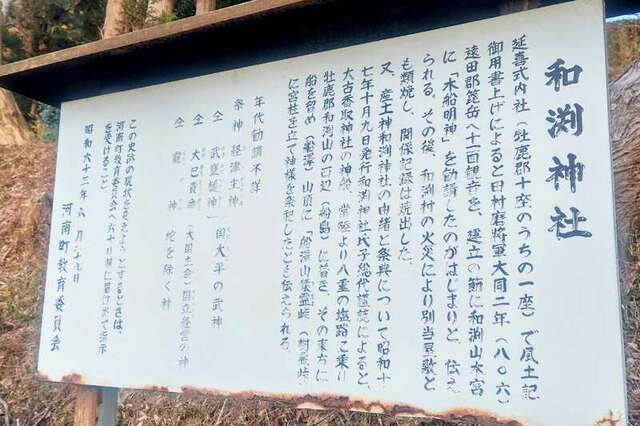 和渕神社
延喜式内社(牡鹿郡十座のうちの一座)で風土記
御用書上げによると田村麿将軍大同二年(八〇六)
遠田郡箆岳へ十一面観音を、建立の節に和渕山本宮
に「木船明神」を勧請したのがはじまりと、伝え
られる。その後、和渕村の火災により別当屋敷と
も類焼し、関係記録は焼出した。
又、産土神和渕神社の由緒と祭典について昭和十
七年十月九日発行和渕神社氏子総代謹誌によると、
大古香取神社の神 常陸より八重の塩路に乗り
牡鹿郡和渕山の西辺(船島)に着き、その東方に
船を留め 山頂に
に宮柱を立て神様を祭祀したとき伝えられる。
年代勧請不詳
祭神 経津主神
仝 武甕槌神 国太平の武神
仝 大己貴命(大国主命)国立経営の神
仝 龍神 蛇を除く神
この史跡の現状を変えようとするときは、
河南町教育委員会へ六十日前に届け出て指示
を受けること。
昭和六十二年八月二十九日
河南町教育委員会